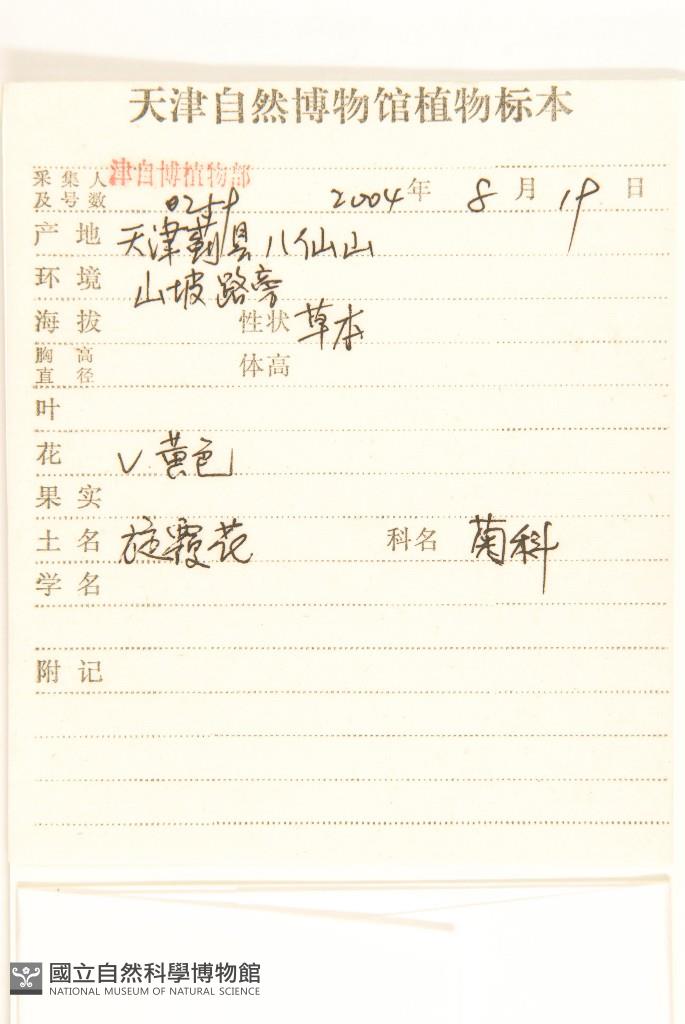 天津自然博物馆植物标本
采集人 津自博植物部
及号数 2004年 8月 19日
产地 天津蓟县八仙山
环境 山坡路旁
海拔 性状 草本
胸高直径 体高
叶
花 ∨ 黄色
果实
土名 旋覆花 科名 菊科
学名
附记
國立自然科學博物館
NATIONAL MUSEUM OF NATURAL SCIENCE